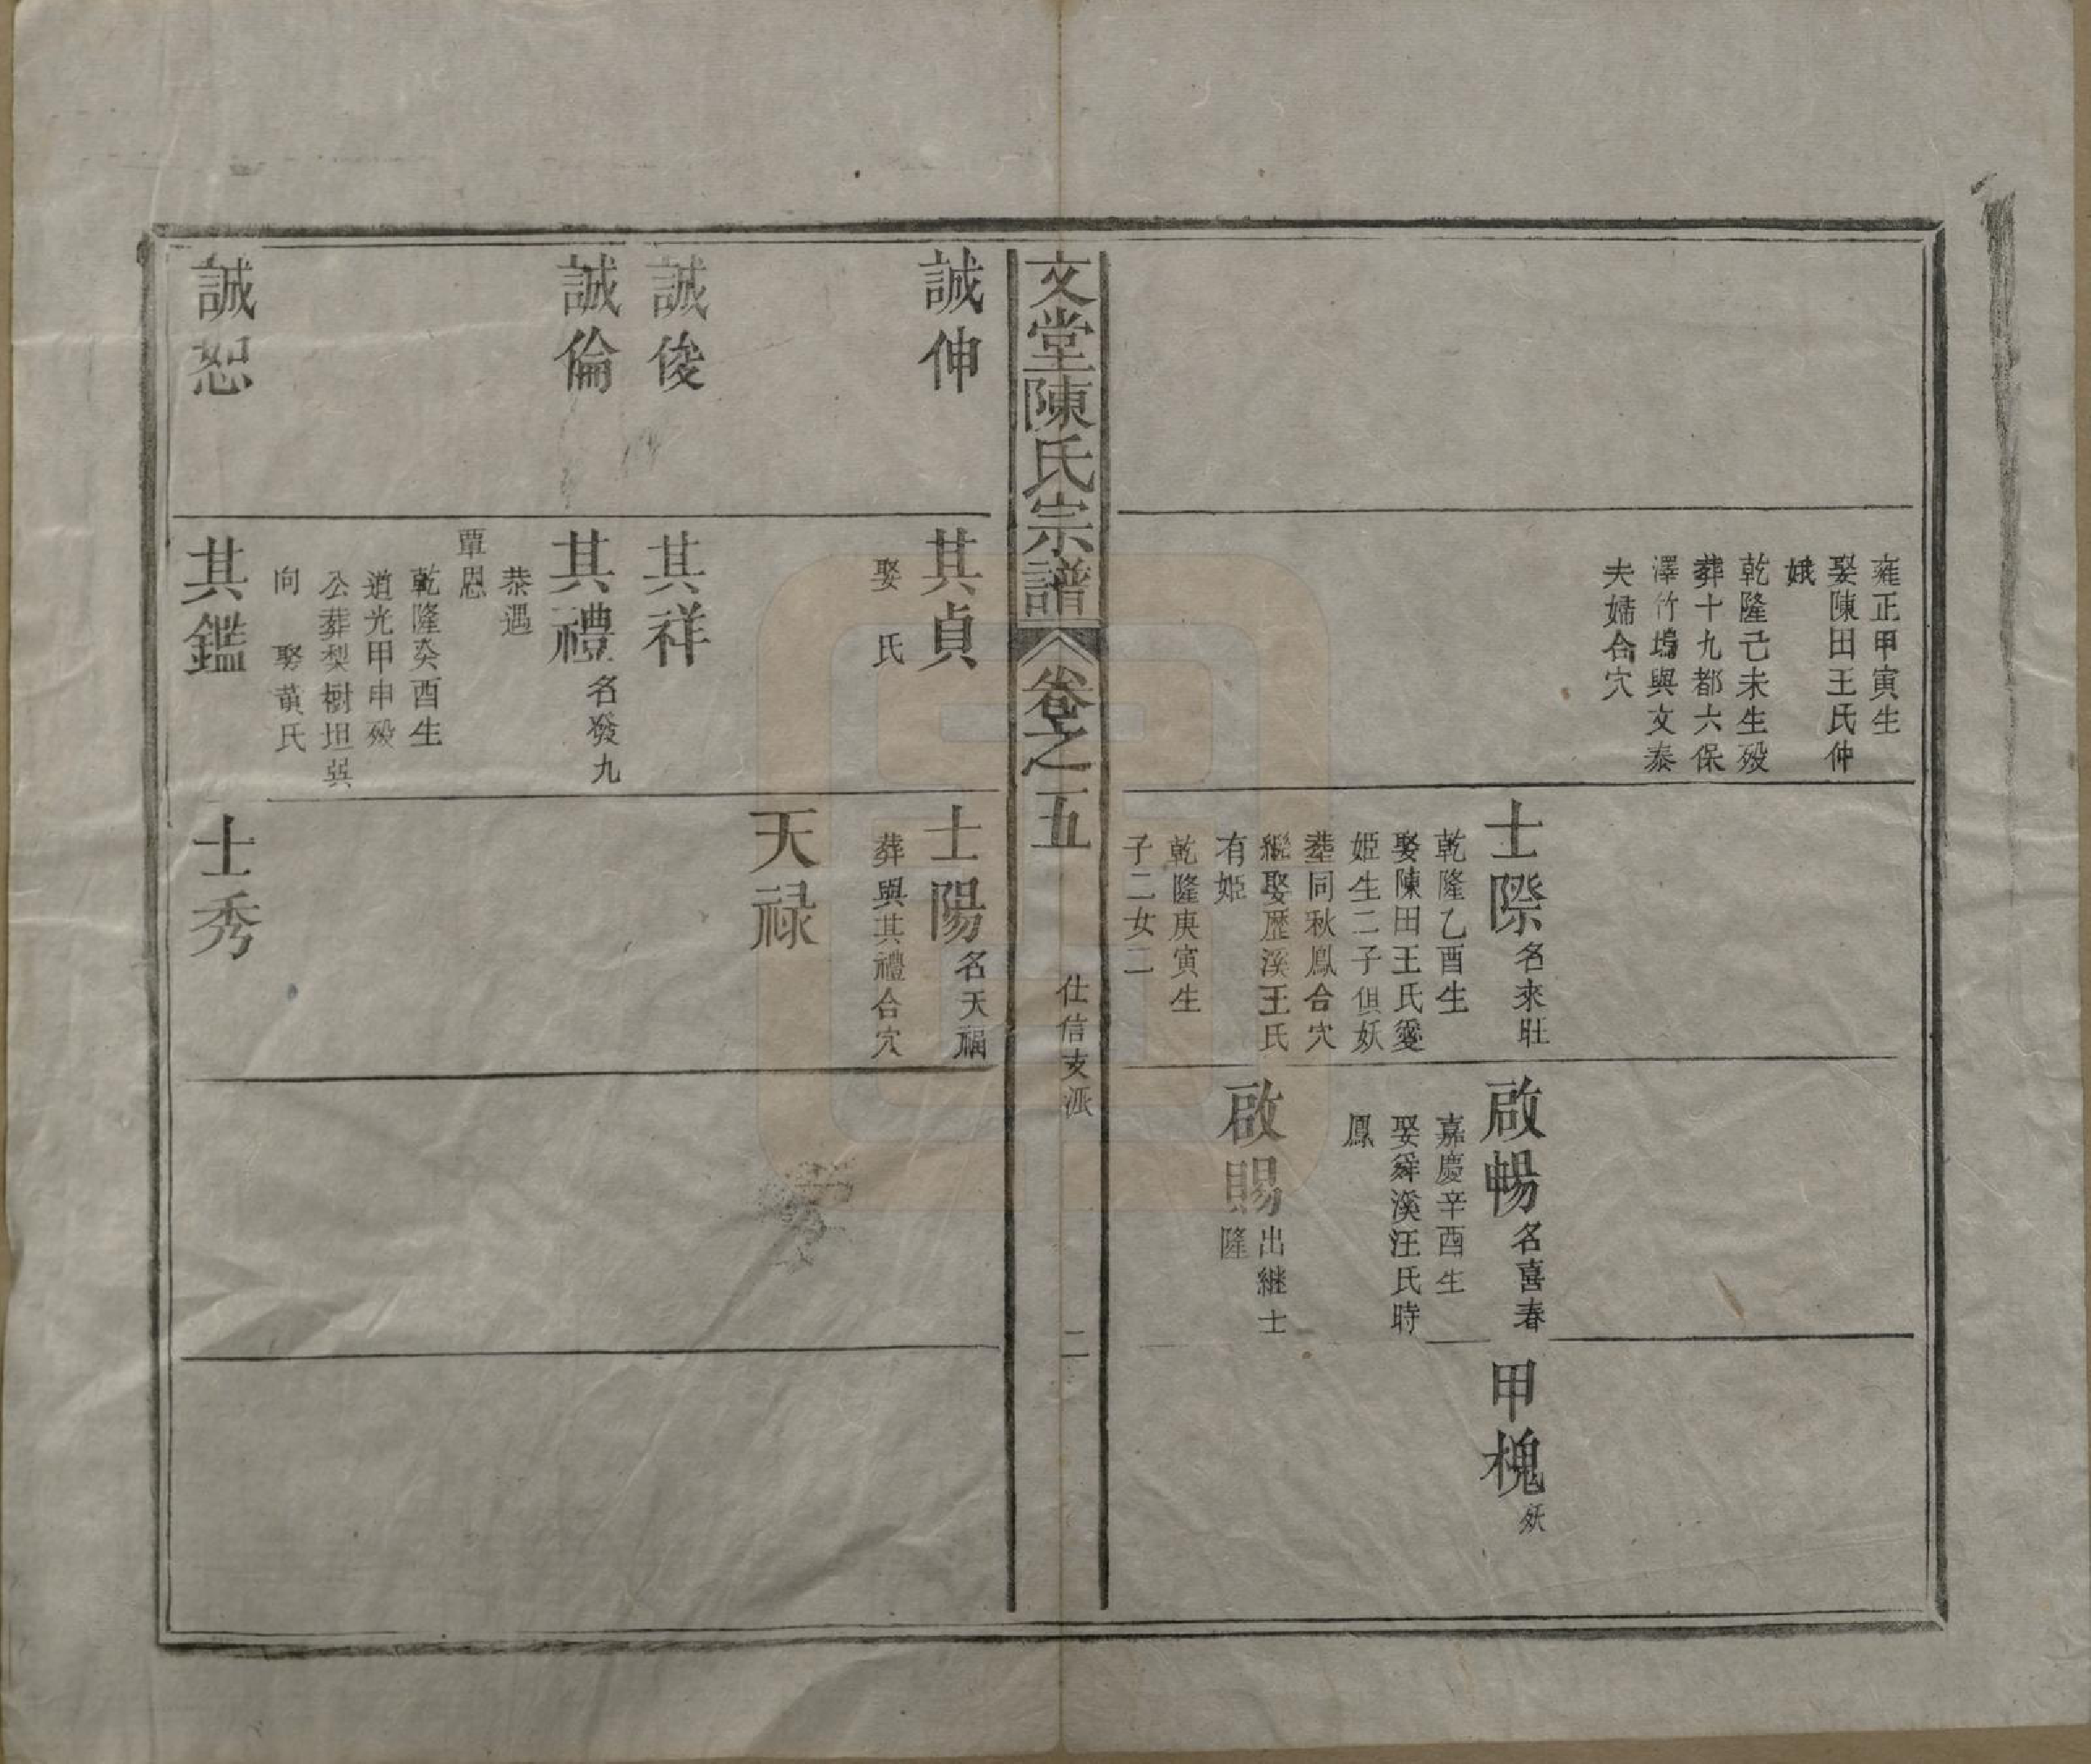 雍正甲寅生
娶陳田王氏仲
娥
乾隆己未生殁
葬十九都六保
澤竹塢與文泰
夫婦合穴
士際名來旺
乾隆乙酉生
娶陳田王氏愛
姫生二子俱妖
塟同秋鳳合穴
繼娶歴溪王氏
有姫
乾隆庚寅生
子二女二
啟暢名喜春
嘉慶辛酉生
娶舜溪汪氏時
鳳
啟賜出継士
隆
甲槐妖
文堂陳氏宗譜
卷之五
仕信支派
二
誠伸
誠俊
誠倫
誠恕
其貞
娶 氏
其祥
其禮名發九
恭遇
覃恩
乾隆癸酉生
道光甲申殁
公葬梨樹坦巽
向 娶黄氏
其鑑
士陽名天福
葬與其禮合穴
天禄
士秀